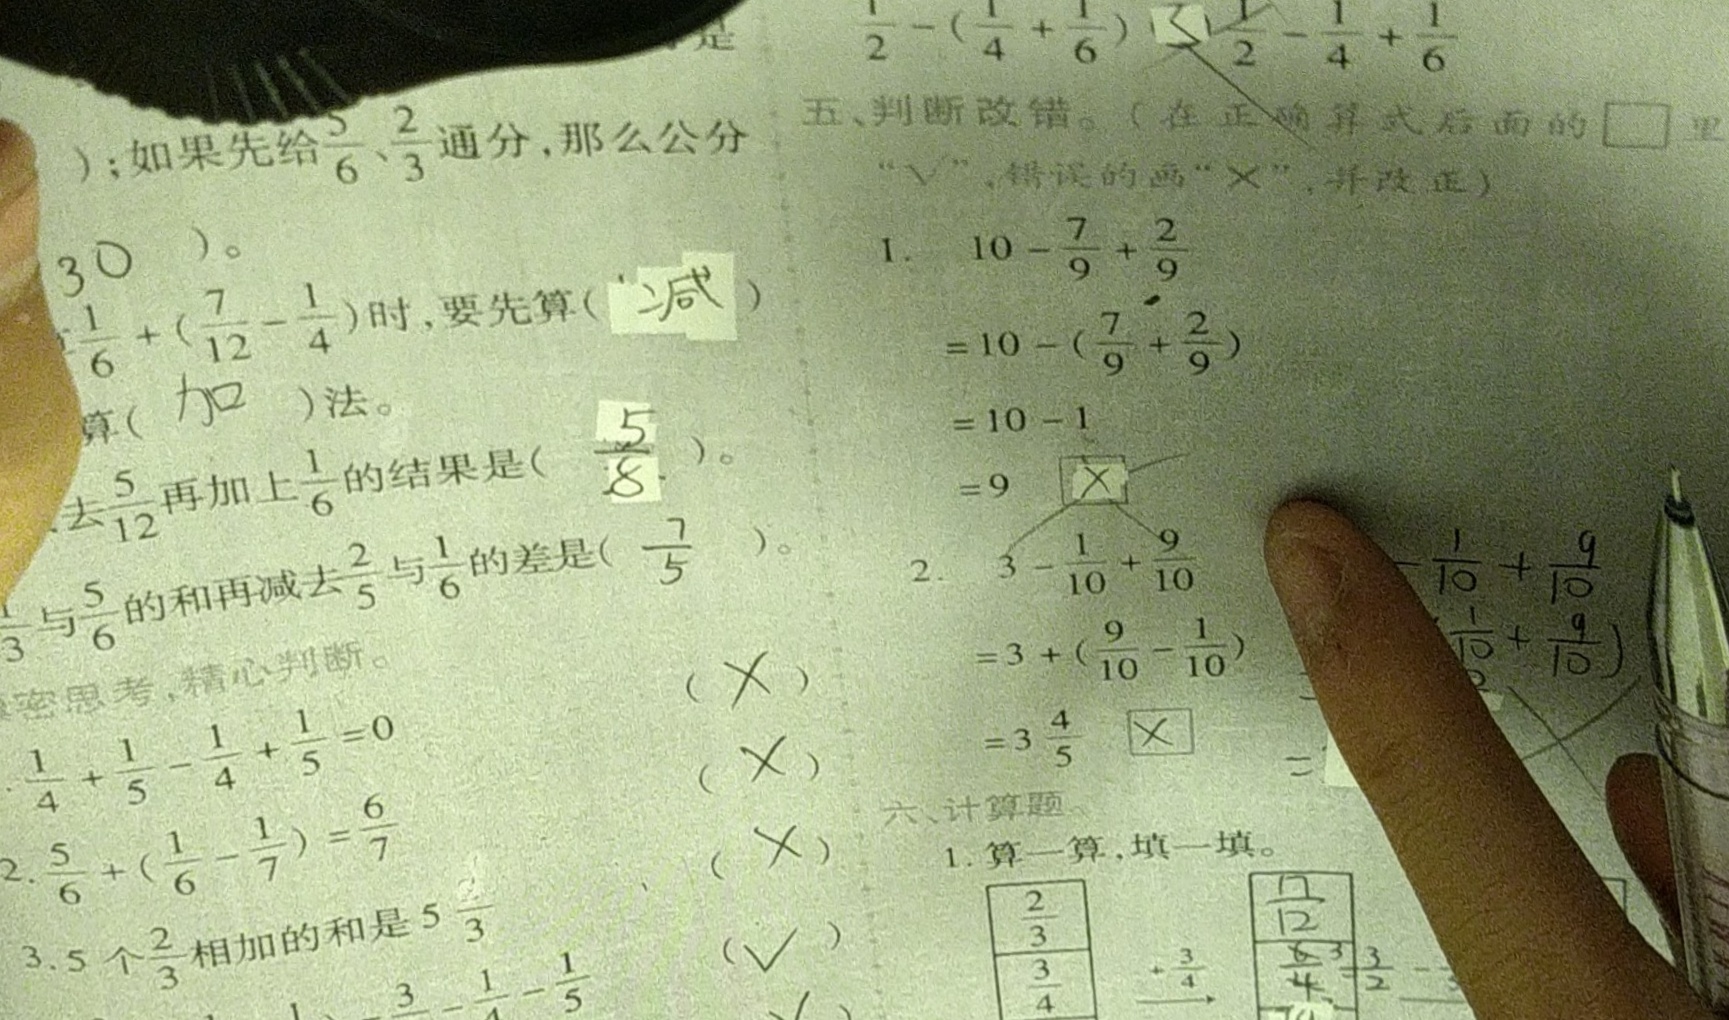 是
);如果先给5/6、2/3通分,那么公分
30 )。
1/6+(7/12-1/4)时,要先算(减)
算(加)法。
去5/12再加上1/6的结果是(5/8)。
1/3与5/6的和再减去2/5与1/6的差是(7/5)。
密思考,精心判断。
(×)
1/4+1/5-1/4+1/5=0 (×)
2. 5/6+(1/6-1/7)=6/7 (×)
3. 5个2/3相加的和是5 2/3 (√)
3/4-1/4-1/5
1/2-(1/4+1/6) 1/2-1/4+1/6
五、判断改错。(在正确算式后面的□里
“√”,错误的画“×”,并改正)
1. 10-7/9+2/9
=10-(7/9+2/9)
=10-1
=9 ×
2. 3-1/10+9/10 -1/10+9/10
=3+(9/10-1/10) 1/10+9/10)
=3 4/5 × =
六、计算题。
1. 算一算,填一填。
2/3 17/12
3/4 +3/4 6/4 3/2